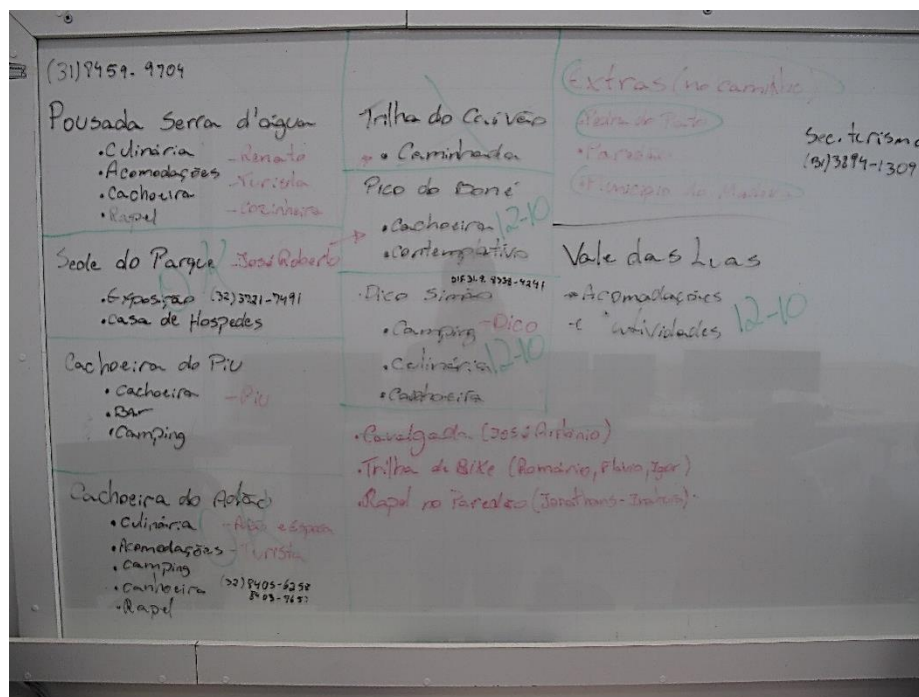 (31)8459-9704
Pousada Serra d'água
• Culinária - Renato
• Acomodações - Turista
• Cachoeira - Cozinheira
• Rapel
Sede do Parque - José Roberto
• Exposição (32)3721-7491
• Casa de Hospedes
Cachoeira do Piu
• Cachoeira - Piu
• Bar
• Camping
Cachoeira do
• Culinária - esposa
• Acomodações - Turista
• Camping
• Canhoeira (32)8405-6258
• Rapel
Trilha do
• Caminhada
Pico do Boné
• Cachoeira 12-10
• Contemplativo
Dico Simão
• Camping - Dico
• Culinária 12-10
• Cachoeira
• Cavalgada (José Antônio)
• Trilha de Bike (Romário, Flávio, Igor)
• Rapel no Paredão
Extras (no caminho)
Pedra do
Sec. turismo
(31)3894-1309
Vale das Luas
Acomodações
e atividades 12-10